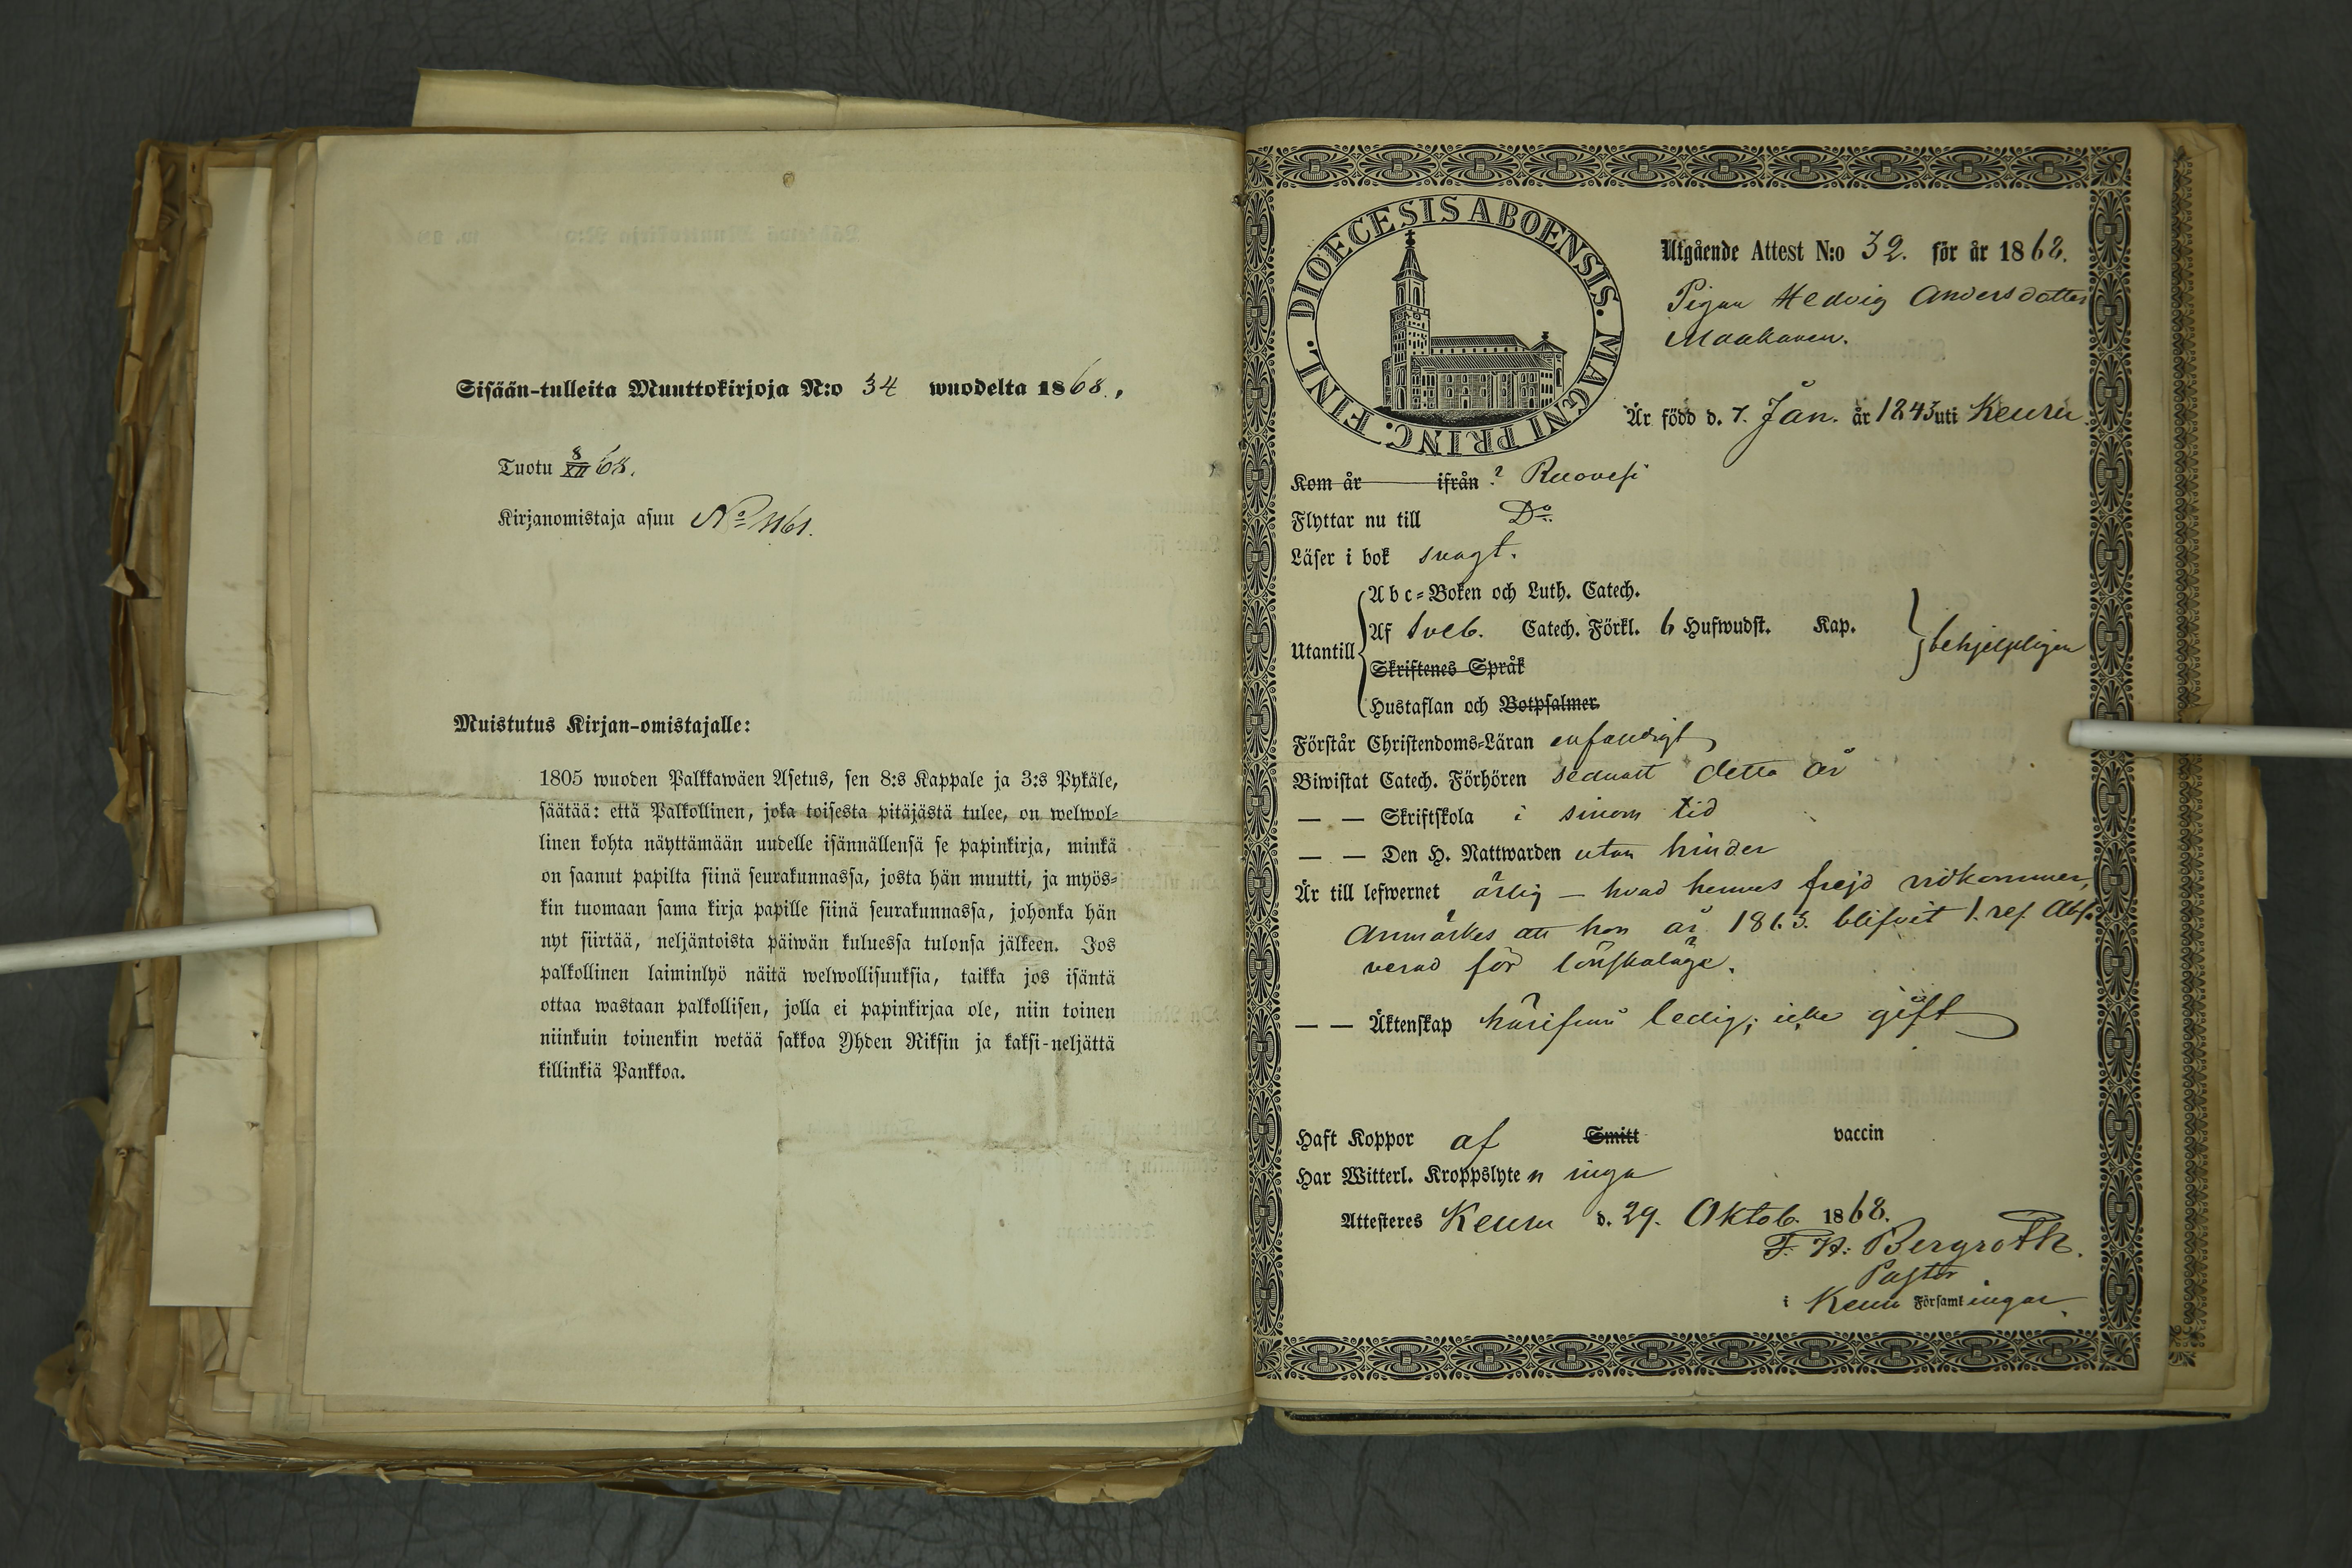 Sisään-tulleita Muuttokirjoja N:o 34 wuodelta 1868,
Tuotu 8/XII 68.
Kirjanomistaja asuu No 1161.
Muistutus Kirjan-omistajalle:
1805 wuoden Palkkawäen Asetus, sen 8:s Kappale ja 3:s Pykäle,
säätää: että Palkollinen, joka toisesta pitäjästä tulee, on welwol-
linen kohta näyttämään uudelle isännällensä se papinkirja, minkä
on saanut papilta siinä seurakunnassa, josta hän muutti, ja myös-
kin tuomaan sama kirja papille siinä seurakunnassa, johonka hän
nyt siirtää, neljäntoista päiwän kuluessa tulonsa jälkeen. Jos
palkollinen laiminlyö näitä welwollisuuksia, taikka jos isäntä
ottaa wastaan palkollisen, jolla ei papinkirjaa ole, niin toinen
niinkuin toinenkin wetää sakkoa Yhden Riksin ja kaksi-neljättä
killinkiä Pankkoa.
DIOECESIS ABOENSIS. MAGNI PRINC. FINL.
Utgående Attest N:o 32. för år 1868.
Pigan Hedvig Andersdotter
Maahanen.
Är född d. 7. Jan. år 1843 uti Keuru.
Kom år ifrån ? Ruovesi
Flyttar nu till Do
Läser i bok svagt.
Utantill
Abc-Boken och Luth. Catech.
Af Sveb. Catech. Förkl. 6 Hufwudst. Kap.
Skriftenes Språk
Hustaflan och Botpsalmer
behjelpligen
Förstår Christendoms-Läran enfaldigt
Biwistat Catech. Förhören sednast detta år
— — Skriftskola i sinom tid
— — Den H. Nattwarden utan hinder
Är till lefwernet ärlig — hvad hennes frejd vidkommer,
anmärkes att hon år 1863. blifvit 1. ref. Absol-
verad för lönskaläge.
— — Äktenskap härifrån ledig; icke gift
Haft Koppor af Smitt vaccin
Har Witterl. Kroppslyten inga
Attesteres Keuru d. 29. Oktob. 1868.
F. H. Bergroth.
Pastor
i Keuru Församlingar